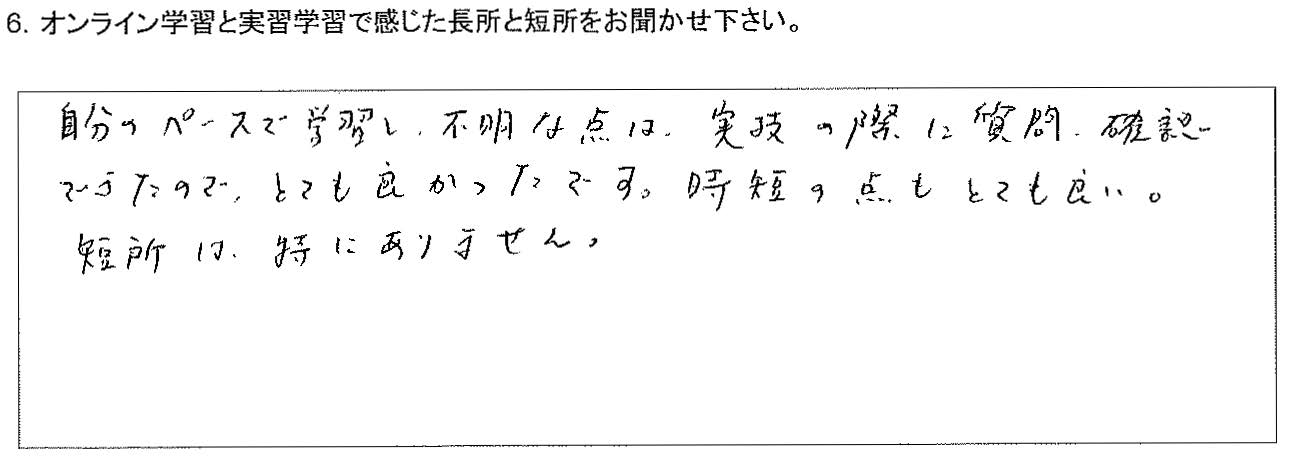 6. オンライン学習と実習学習で感じた長所と短所をお聞かせ下さい。
自分のペースで学習し、不明な点は、実技の際に質問、確認
できたので、とても良かったです。時短の点もとても良い。
短所は、特にありません。